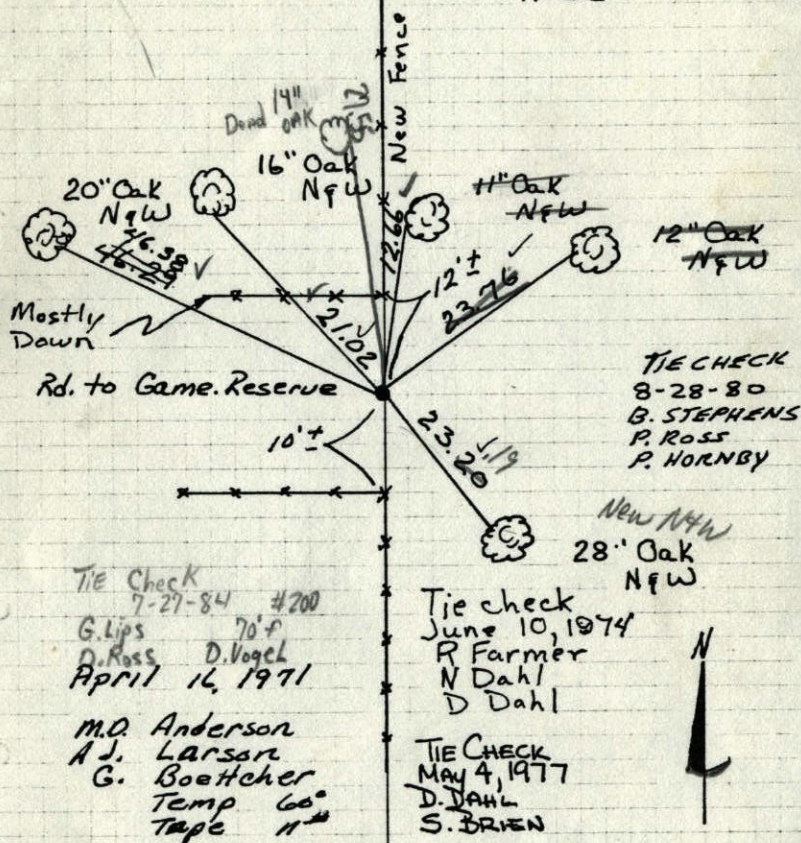 New Fence
Dead 14"
OAK
16" Oak
N&W
20" Oak
N&W
11" Oak
N&W
12" Oak
N&W
12.66
12'±
23.76
21.02
Mostly
Down
Rd. to Game Reserve
10'±
23.20
TIE CHECK
8-28-80
B. STEPHENS
P. ROSS
P. HORNBY
New N&W
28" Oak
N&W
Tie Check
7-27-84 #200
G. Lips 70°f
D. Ross D. Vogel
April 16, 1971
M.D. Anderson
A J. Larson
G. Boettcher
Temp 60°
Tape
Tie check
June 10, 1974
R Farmer
N Dahl
D Dahl
TIE CHECK
MAY 4, 1977
D. DAHL
S. BRIEN
N